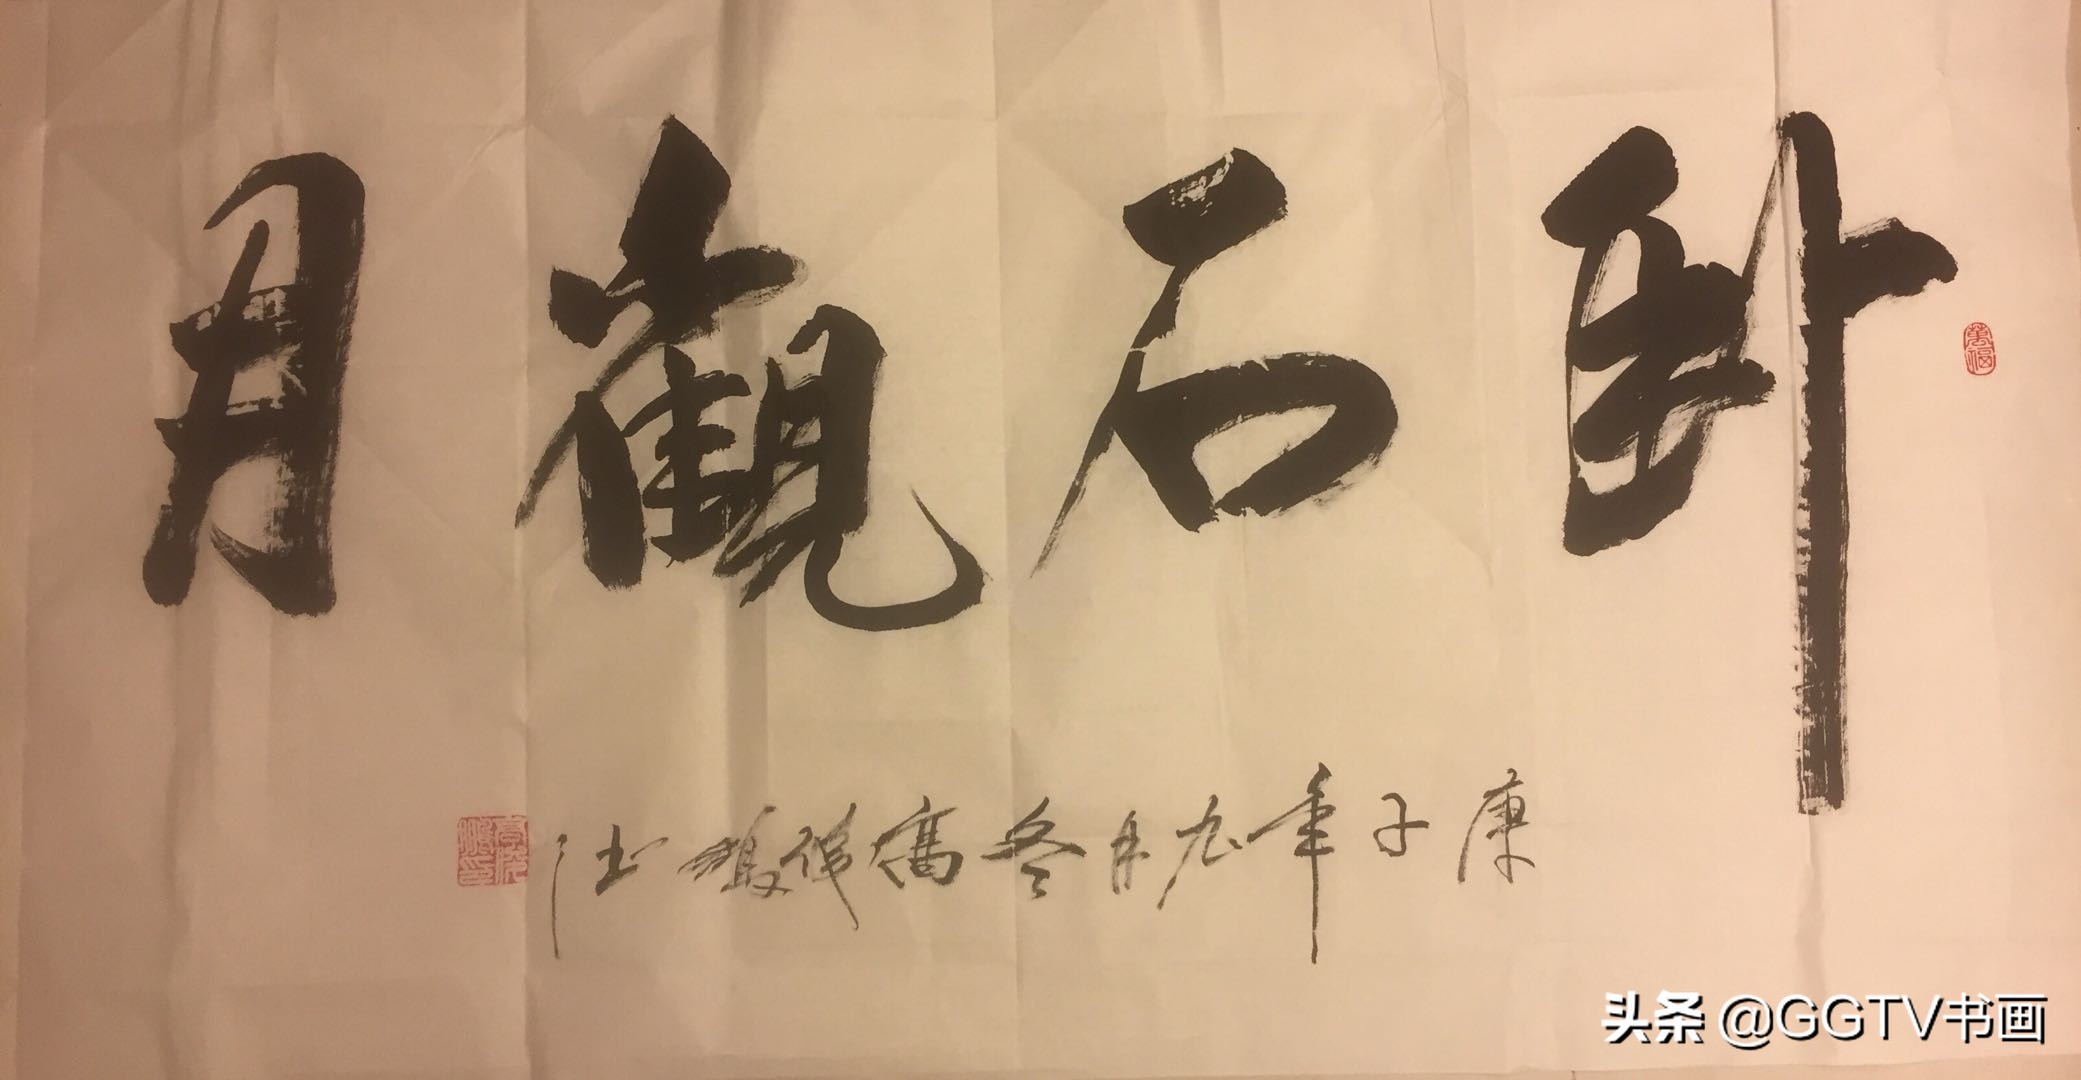 卧石觀月
庚子年九月冬
萬福
头条 @GGTV书画